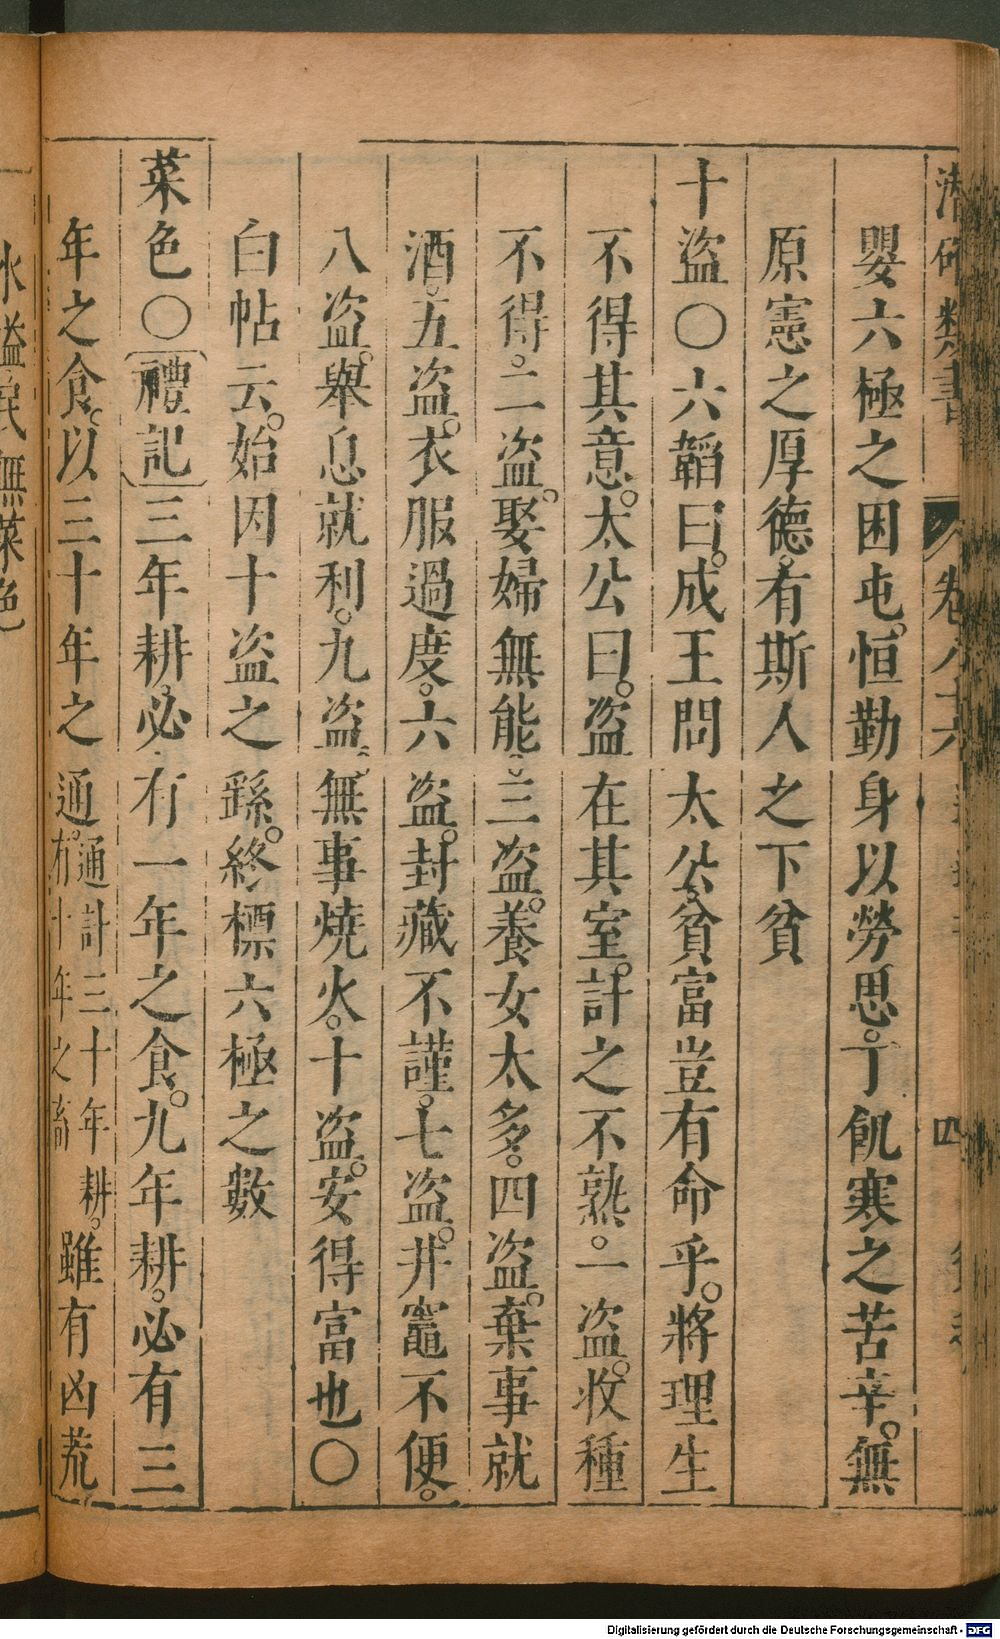 嬰六極之困屯。恒勤身以勞思。丁飢寒之苦辛。無
原憲之厚德。有斯人之下貧
十盜○六韜曰。成王問太公。貧富豈有命乎。將理生
不得其意。太公曰。盜在其室。計之不熟。一盜。收種
不得。二盜。娶婦無能。三盜。養女太多。四盜。棄事就
酒。五盜。衣服過度。六盜。封藏不謹。七盜。井竈不便。
八盜。舉息就利。九盜。無事燒火。十盜。安得富也○
白帖云。始因十盜之繇。終標六極之數
菜色○禮記三年耕。必有一年之食。九年耕。必有三
年之食。以三十年之通通計三十年耕。通有十年之畜雖有凶荒
水溢民無菜色
潛確類書 卷八十六 四
Digitalisierung gefördert durch die Deutsche Forschungsgemeinschaft - DFG